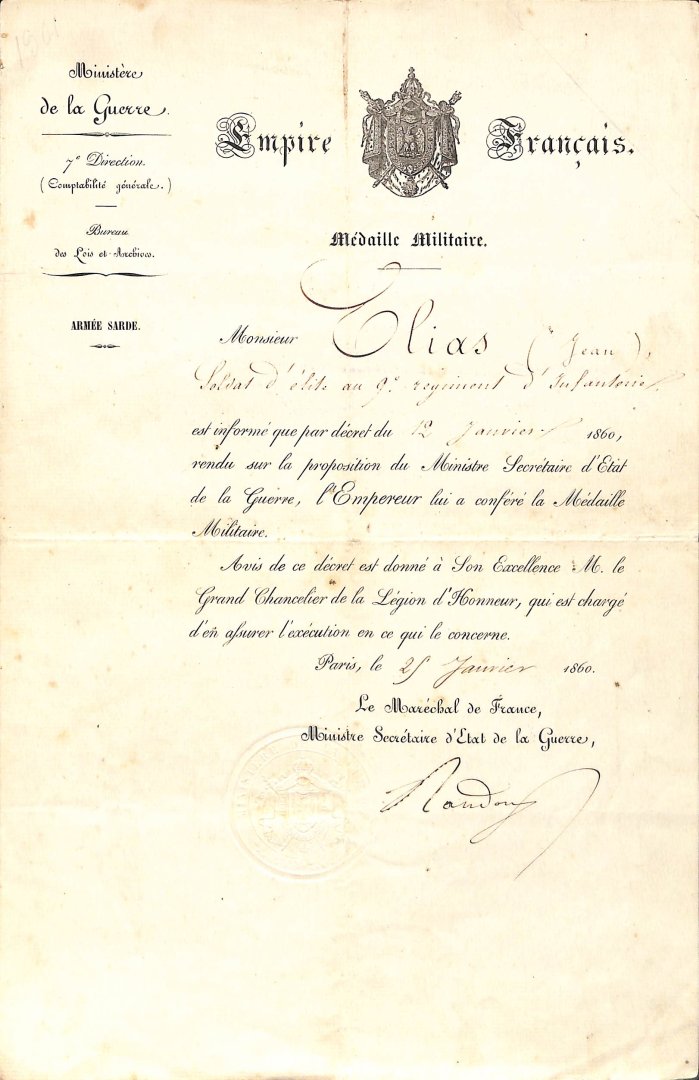 Ministère
de la Guerre.
7e Direction.
(Comptabilité générale.)
Bureau
des Lois et Archives.
ARMÉE SARDE.
Empire Français.
Médaille Militaire.
Monsieur Elias (Jean),
Soldat d'élite au 9e régiment d'Infanterie,
est informé que par décret du 12 Janvier 1860,
rendu sur la proposition du Ministre Secrétaire d'Etat
de la Guerre, l'Empereur lui a conféré la Médaille
Militaire.
Avis de ce décret est donné à Son Excellence M. le
Grand Chancelier de la Légion d'Honneur, qui est chargé
d'en assurer l'exécution en ce qui le concerne.
Paris, le 25 Janvier 1860.
Le Maréchal de France,
Ministre Secrétaire d'Etat de la Guerre,
Randon